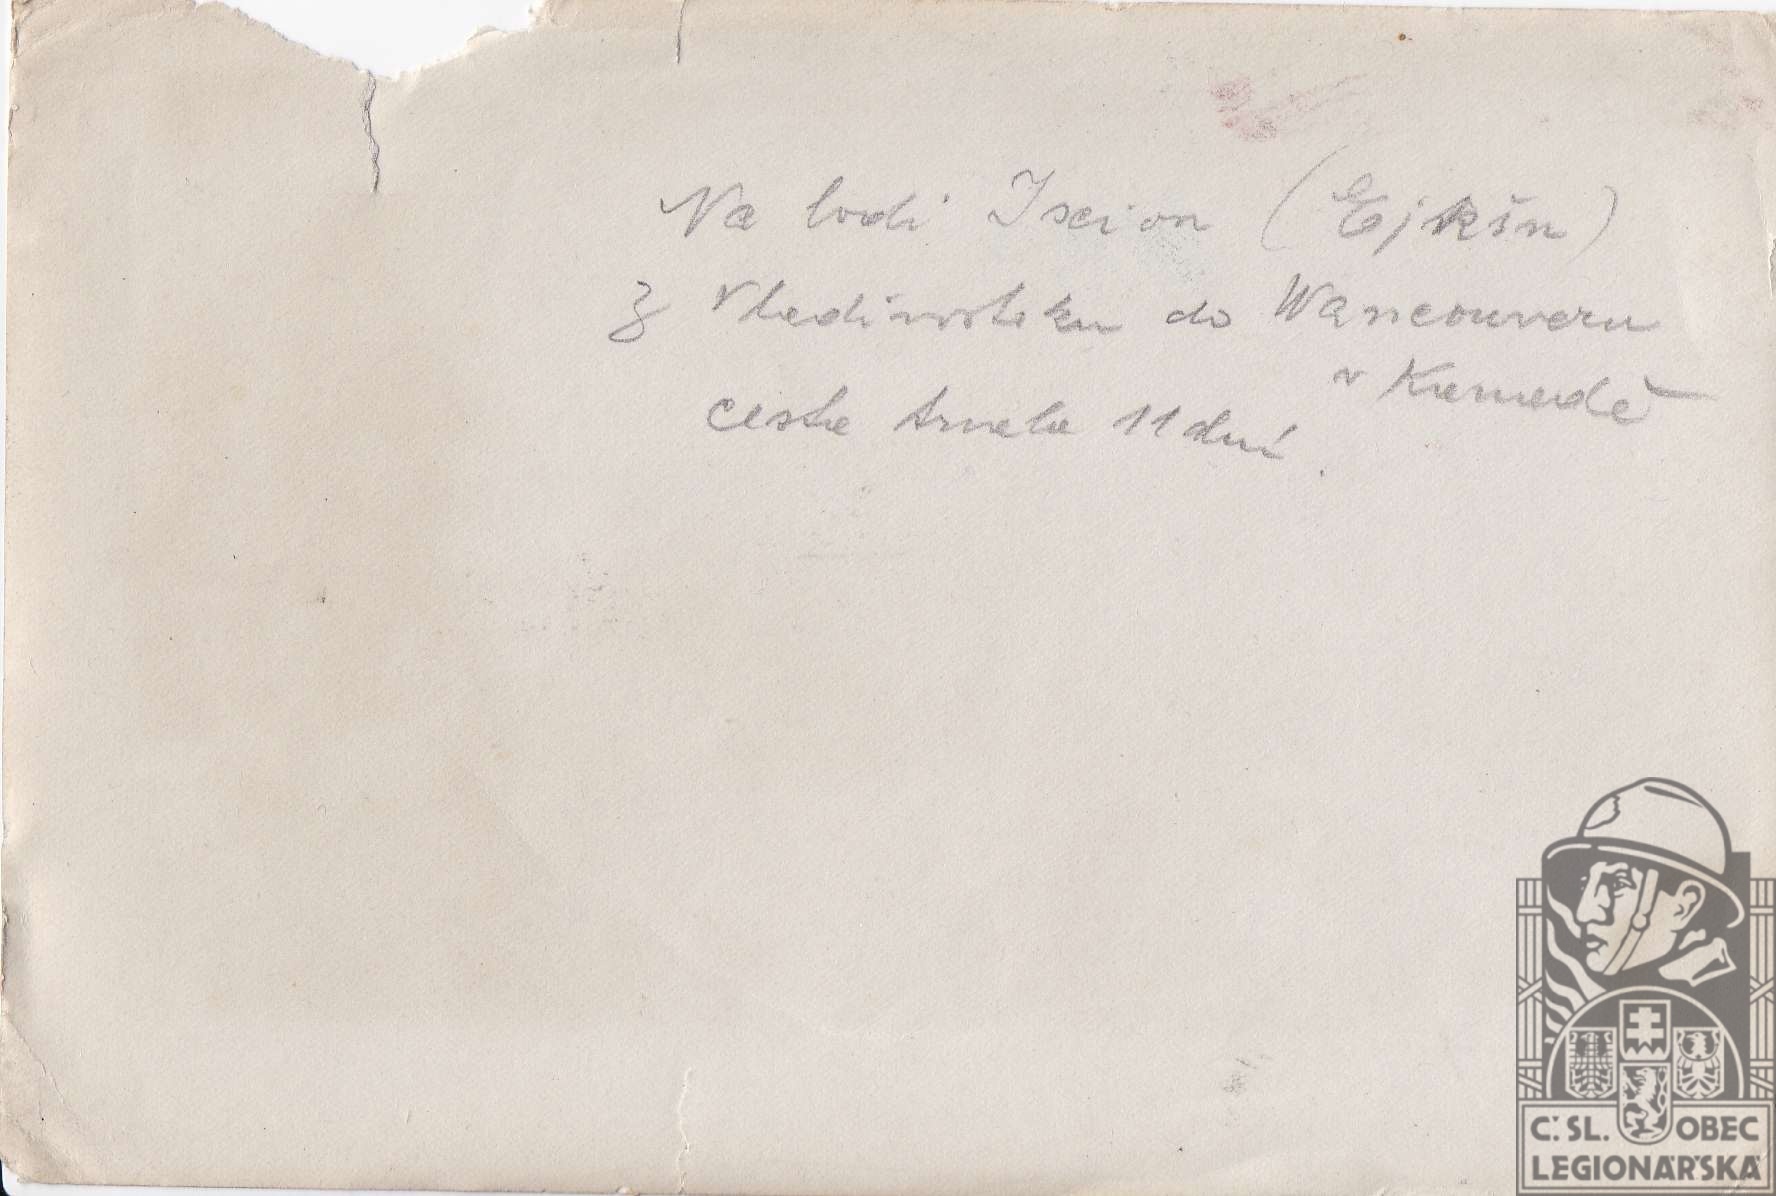 Na lodi Ixion (Ejkšn)
z Vladivostoku do Wancouveru
v Kanadě
cesta trvala 11 dní.
Č. SL. OBEC
LEGIONÁŘSKÁ